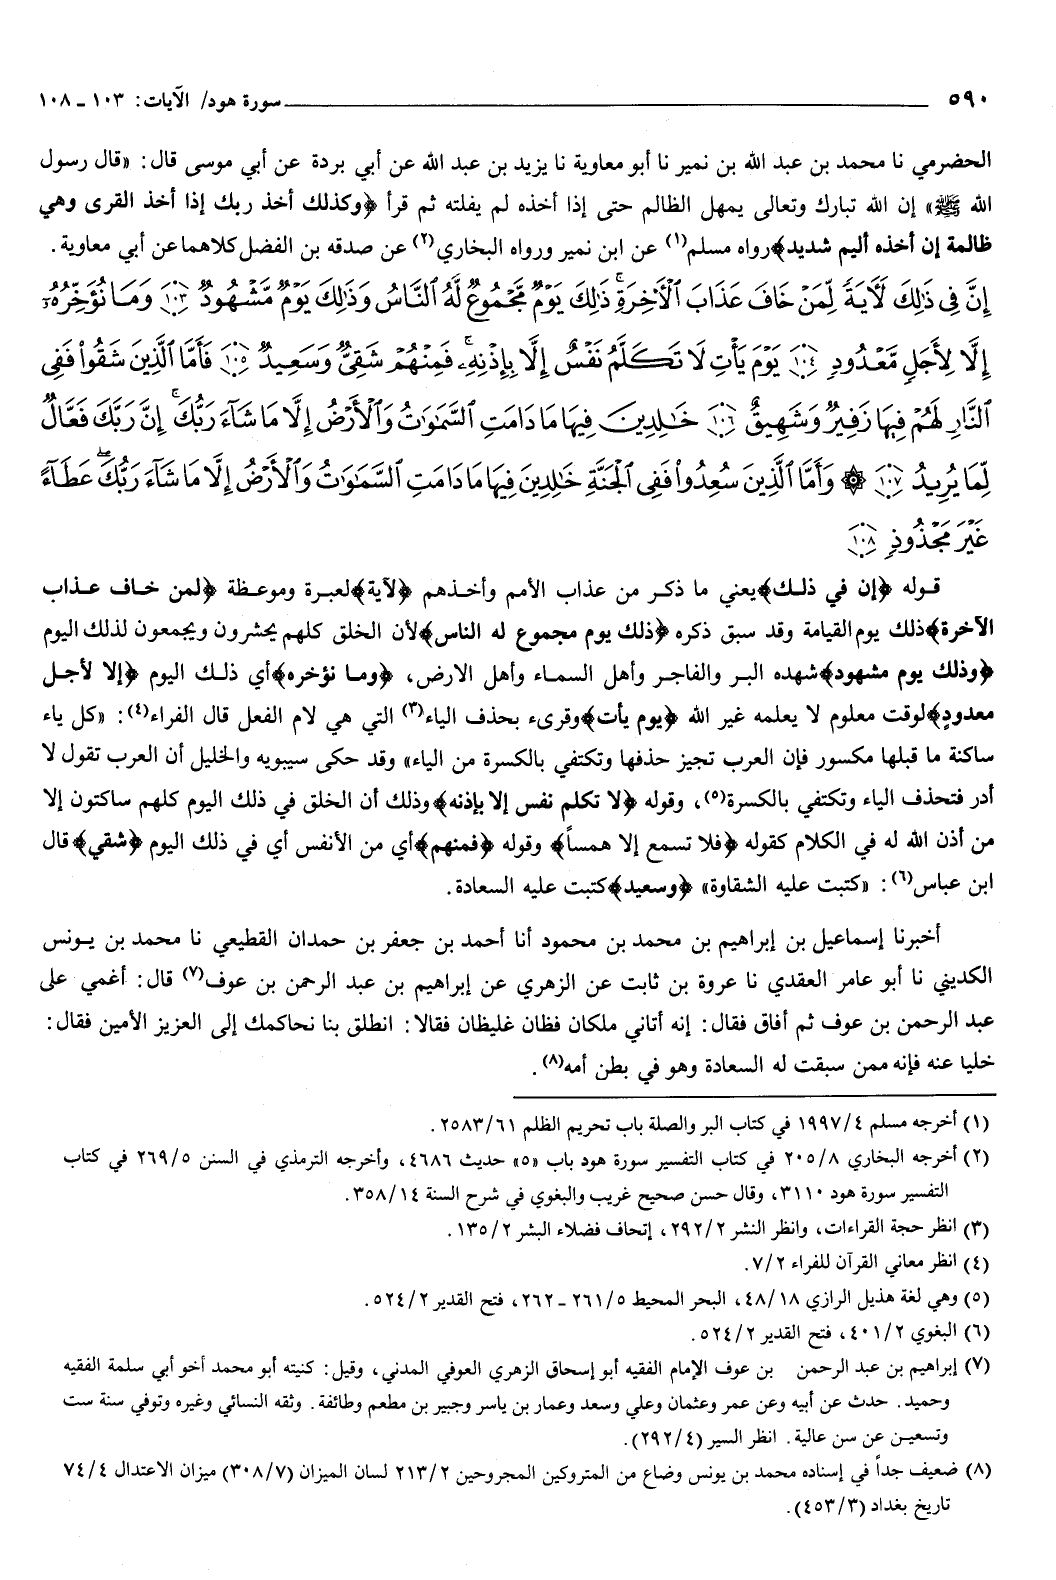 ٥٩٠ سورة هود/ الآيات: ١٠٣ ـ ١٠٨
الحضرمي نا محمد بن عبد الله بن نمير نا أبو معاوية نا يزيد بن عبد الله عن أبي بردة عن أبي موسى قال: «قال رسول
الله ﷺ» إن الله تبارك وتعالى يمهل الظالم حتى إذا أخذه لم يفلته ثم قرأ ﴿وكذلك أخذ ربك إذا أخذ القرى وهي
ظالمة إن أخذه أليم شديد﴾رواه مسلم(١) عن ابن نمير ورواه البخاري(٢) عن صدقه بن الفضل كلاهما عن أبي معاوية.
إِنَّ فِي ذَٰلِكَ لَآيَةً لِّمَنْ خَافَ عَذَابَ ٱلْآخِرَةِ ۚ ذَٰلِكَ يَوْمٌ مَّجْمُوعٌ لَّهُ ٱلنَّاسُ وَذَٰلِكَ يَوْمٌ مَّشْهُودٌ ١٠٣ وَمَا نُؤَخِّرُهُۥٓ
إِلَّا لِأَجَلٍ مَّعْدُودٍ ١٠٤ يَوْمَ يَأْتِ لَا تَكَلَّمُ نَفْسٌ إِلَّا بِإِذْنِهِۦ ۚ فَمِنْهُمْ شَقِيٌّ وَسَعِيدٌ ١٠٥ فَأَمَّا ٱلَّذِينَ شَقُوا۟ فَفِي
ٱلنَّارِ لَهُمْ فِيهَا زَفِيرٌ وَشَهِيقٌ ١٠٦ خَٰلِدِينَ فِيهَا مَا دَامَتِ ٱلسَّمَٰوَٰتُ وَٱلْأَرْضُ إِلَّا مَا شَآءَ رَبُّكَ ۚ إِنَّ رَبَّكَ فَعَّالٌ
لِّمَا يُرِيدُ ١٠٧ ۞ وَأَمَّا ٱلَّذِينَ سُعِدُوا۟ فَفِي ٱلْجَنَّةِ خَٰلِدِينَ فِيهَا مَا دَامَتِ ٱلسَّمَٰوَٰتُ وَٱلْأَرْضُ إِلَّا مَا شَآءَ رَبُّكَ ۖ عَطَآءً
غَيْرَ مَجْذُوذٍ ١٠٨
قوله ﴿إن في ذلك﴾يعني ما ذكر من عذاب الأمم وأخذهم ﴿لآية﴾لعبرة وموعظة ﴿لمن خاف عذاب
الآخرة﴾ذلك يوم القيامة وقد سبق ذكره ﴿ذلك يوم مجموع له الناس﴾لأن الخلق كلهم يحشرون ويجمعون لذلك اليوم
﴿وذلك يوم مشهود﴾شهده البر والفاجر وأهل السماء وأهل الارض، ﴿وما نؤخره﴾أي ذلك اليوم ﴿إلا لأجل
معدودٍ﴾لوقت معلوم لا يعلمه غير الله ﴿يوم يأت﴾وقرىء بحذف الياء(٣) التي هي لام الفعل قال الفراء(٤): «كل ياء
ساكنة ما قبلها مكسور فإن العرب تجيز حذفها وتكتفي بالكسرة من الياء» وقد حكى سيبويه والخليل أن العرب تقول لا
أدر فتحذف الياء وتكتفي بالكسرة(٥)، وقوله ﴿لا تكلم نفس إلا بإذنه﴾وذلك أن الخلق في ذلك اليوم كلهم ساكتون إلا
من أذن الله له في الكلام كقوله ﴿فلا تسمع إلا همساً﴾ وقوله ﴿فمنهم﴾أي من الأنفس أي في ذلك اليوم ﴿شقي﴾قال
ابن عباس(٦): «كتبت عليه الشقاوة» ﴿وسعيد﴾كتبت عليه السعادة.
أخبرنا إسماعيل بن إبراهيم بن محمد بن محمود أنا أحمد بن جعفر بن حمدان القطيعي نا محمد بن يونس
الكديني نا أبو عامر العقدي نا عروة بن ثابت عن الزهري عن إبراهيم بن عبد الرحمن بن عوف(٧) قال: أغمي على
عبد الرحمن بن عوف ثم أفاق فقال: إنه أتاني ملكان فظان غليظان فقالا: انطلق بنا نحاكمك إلى العزيز الأمين فقال:
خليا عنه فإنه ممن سبقت له السعادة وهو في بطن أمه(٨).
(١) أخرجه مسلم ١٩٩٧/٤ في كتاب البر والصلة باب تحريم الظلم ٢٥٨٣/٦١.
(٢) أخرجه البخاري ٢٠٥/٨ في كتاب التفسير سورة هود باب «٥» حديث ٤٦٨٦، وأخرجه الترمذي في السنن ٢٦٩/٥ في كتاب
التفسير سورة هود ٣١١٠، وقال حسن صحيح غريب والبغوي في شرح السنة ٣٥٨/١٤.
(٣) انظر حجة القراءات، وانظر النشر ٢٩٢/٢، إتحاف فضلاء البشر ١٣٥/٢.
(٤) انظر معاني القرآن للفراء ٧/٢.
(٥) وهي لغة هذيل الرازي ٤٨/١٨، البحر المحيط ٢٦١/٥ ـ ٢٦٢، فتح القدير ٥٢٤/٢.
(٦) البغوي ٤٠١/٢، فتح القدير ٥٢٤/٢.
(٧) إبراهيم بن عبد الرحمن بن عوف الإمام الفقيه أبو إسحاق الزهري العوفي المدني، وقيل: كنيته أبو محمد أخو أبي سلمة الفقيه
وحميد. حدث عن أبيه وعن عمر وعثمان وعلي وسعد وعمار بن ياسر وجبير بن مطعم وطائفة. وثقه النسائي وغيره وتوفي سنة ست
وتسعين عن سن عالية. انظر السير (٢٩٢/٤).
(٨) ضعيف جداً في إسناده محمد بن يونس وضاع من المتروكين المجروحين ٢١٣/٢ لسان الميزان (٣٠٨/٧) ميزان الاعتدال ٧٤/٤
تاريخ بغداد (٤٥٣/٣).